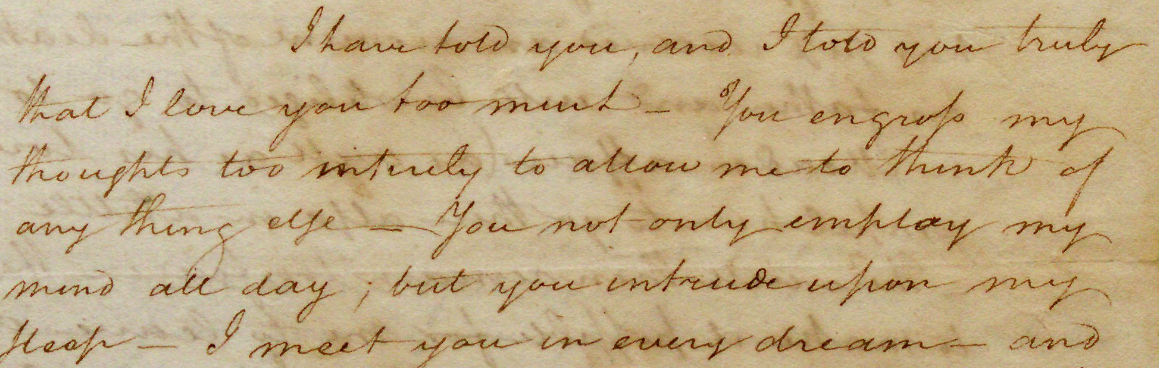 I have told you, and I told you truly
that I love you too much — You engross my
thoughts too intirely to allow me to think of
any thing else — You not only employ my
mind all day; but you intrude upon my
sleep — I meet you in every dream — and